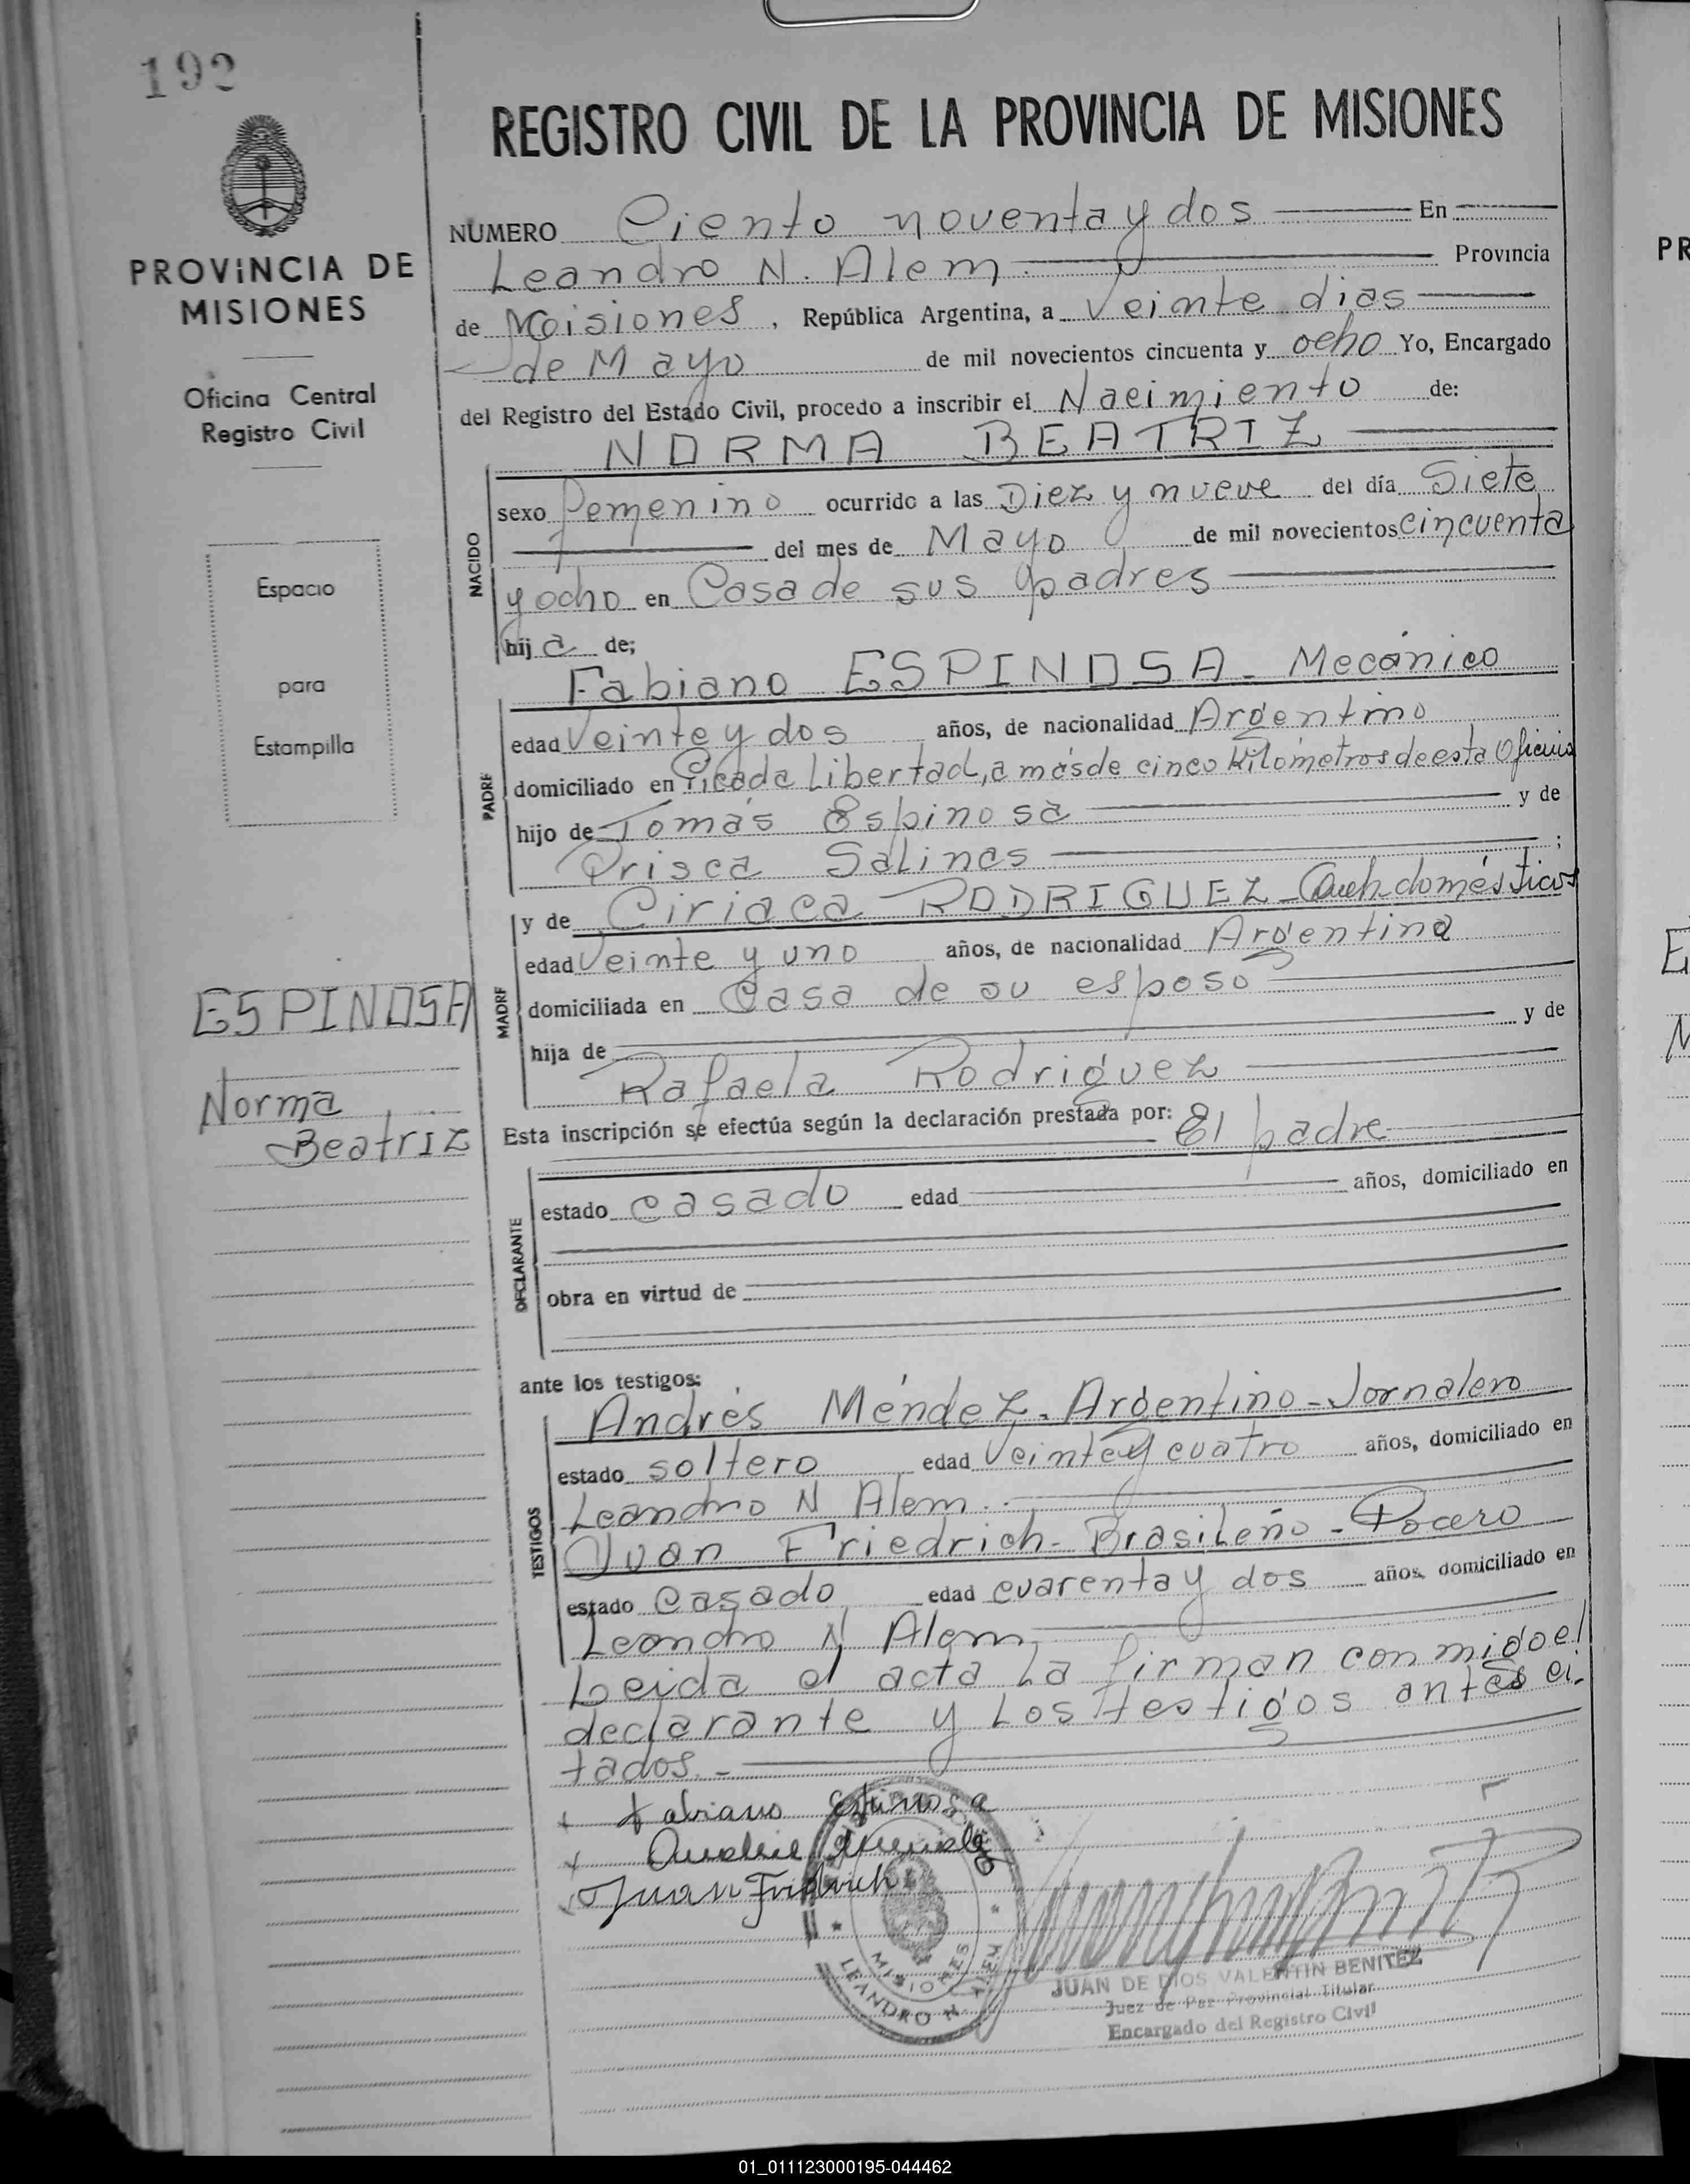 192
REGISTRO CIVIL DE LA PROVINCIA DE MISIONES
PROVINCIA DE
MISIONES
Oficina Central
Registro Civil
Espacio
para
Estampilla
ESPINOSA
Norma
Beatriz
NUMERO Ciento noventa y dos En
Leandro N. Alem Provincia
de Moisiones, República Argentina, a Veinte dias
de Mayo de mil novecientos cincuenta y ocho Yo, Encargado
del Registro del Estado Civil, procedo a inscribir el Nacimiento de:
NORMA BEATRIZ
NACIDO
sexo femenino ocurrido a las Diez y nueve del día Siete
del mes de Mayo de mil novecientos cincuenta
y ocho en Casa de sus padres
hija de;
Fabiano ESPINOSA - Mecánico
PADRE
edad Veinte y dos años, de nacionalidad Argentino
domiciliado en Picada Libertad, a más de cinco Kilómetros de esta Oficina
hijo de Tomás Espinosa y de
Prisca Salinas ;
y de Ciriaca RODRIGUEZ - Queh-domésticos
MADRE
edad Veinte y uno años, de nacionalidad Argentina
domiciliada en Casa de su esposo
hija de y de
Rafaela Rodríguez
Esta inscripción se efectúa según la declaración prestada por: El padre
DECLARANTE
estado casado edad años, domiciliado en
obra en virtud de
ante los testigos:
Andrés Méndez - Argentino - Jornalero
TESTIGOS
estado soltero edad Veinte y cuatro años, domiciliado en
Leandro N Alem
Juan Friedrich - Brasileño - Pocero
estado Casado edad cuarenta y dos años, domiciliado en
Leandro N Alem
Leida el acta la firman conmigo el
declarante y los testigos antes ci-
tados.-
Fabiano Espinosa
Juan Friedrich
MISIONES
LEANDRO N. ALEM
JUAN DE DIOS VALENTIN BENITEZ
Juez de Paz Provincial Titular
Encargado del Registro Civil
PR
01_011123000195-044462